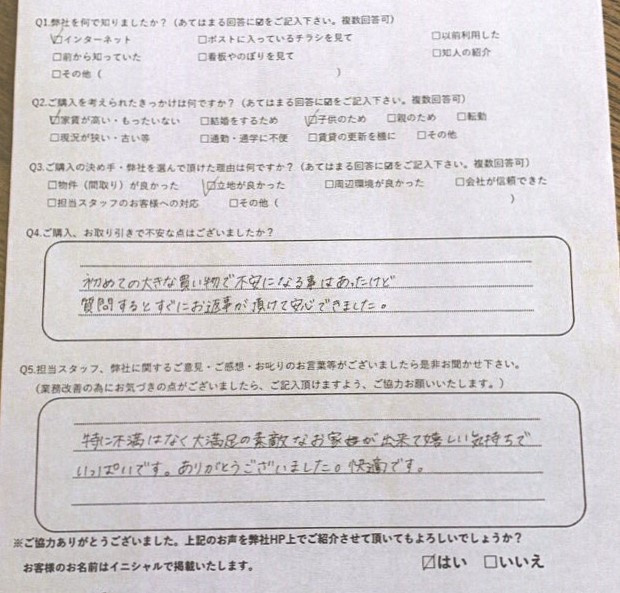 Q1.弊社を何で知りましたか？（あてはまる回答に☑をご記入下さい。複数回答可）
☑インターネット　□ポストに入っているチラシを見て　□以前利用した
□前から知っていた　□看板やのぼりを見て　□知人の紹介
□その他（　　　）
Q2.ご購入を考えられたきっかけは何ですか？（あてはまる回答に☑をご記入下さい。複数回答可）
☑家賃が高い・もったいない　□結婚をするため　☑子供のため　□親のため　□転勤
□現況が狭い・古い等　□通勤・通学に不便　□賃貸の更新を機に　□その他
Q3.ご購入の決め手・弊社を選んで頂けた理由は何ですか？（あてはまる回答に☑をご記入下さい。複数回答可）
□物件（間取り）が良かった　☑立地が良かった　□周辺環境が良かった　□会社が信頼できた
□担当スタッフのお客様への対応　□その他（　　　）
Q4.ご購入、お取り引きで不安な点はございましたか？
初めての大きな買い物で不安になる事はあったけど
質問するとすぐにお返事が頂けて安心できました。
Q5.担当スタッフ、弊社に関するご意見・ご感想・お叱りのお言葉等がございましたら是非お聞かせ下さい。
（業務改善の為にお気づきの点がございましたら、ご記入頂けますよう、ご協力お願いいたします。）
特に不満はなく大満足の素敵なお家が出来て嬉しい気持ちで
いっぱいです。ありがとうございました。快適です。
※ご協力ありがとうございました。上記のお声を弊社HP上でご紹介させて頂いてもよろしいでしょうか？
お客様のお名前はイニシャルで掲載いたします。　☑はい　□いいえ